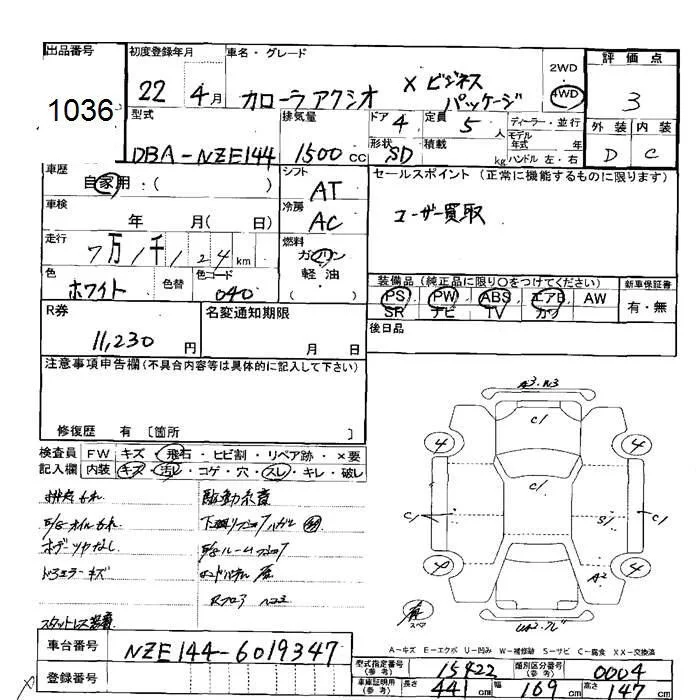 出品番号 初度登録年月 車名・グレード 評価点
1036 22年 4月 カローラアクシオ X ビジネスパッケージ 2WD 4WD 3
型式 排気量 ドア 4 定員 5人 ディーラー・並行 外装 内装
DBA-NZE144 1500cc 形状 SD 積載 kg モデル年式 年 ハンドル 左・右 D C
車歴 自家用:( ) シフト AT セールスポイント(正常に機能するものに限ります)
車検 年 月( 日) 冷房 AC ユーザー買取
走行 7万1千124km 燃料 ガソリン 軽油 ( )
色 ホワイト 色替 色コード 040
装備品(純正品に限り○をつけてください) 新車保証書
PS PW ABS エアB AW 有・無
SR ナビ TV カワ
R券 11,230円 名変通知期限 月 日 後日品
注意事項申告欄(不具合内容等は具体的に記入して下さい)
修復歴 有 〔箇所 〕
検査員 FW キズ・飛石・ヒビ割・リペア跡・×要
記入欄 内装 キズ・汚レ・コゲ・穴・スレ・キレ・破レ
排気もれ 駆動系音
E/gオイルもれ
ボデーツヤなし E/gルーム
ドアミラーキズ
Rフロア
スタッドレス装着
A3
C1
4 4
C1
C1 S1 C1
A2
4 4
有 スペア
A-キズ E-エクボ U-凹み W-補修跡 S-サビ C-腐食 XX-交換済
車台番号 NZE144-6019347
登録番号
型式指定番号(参考) 15422 類別区分番号(参考) 0004
車庫証明用(参考) 長さ 441cm 幅 169cm 高さ 147cm